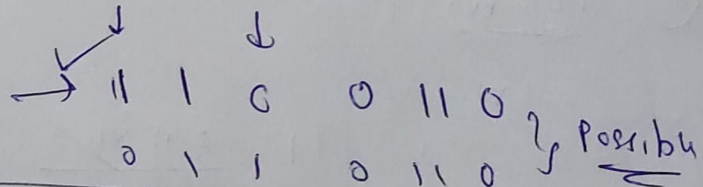 → 11 1 0 0 11 0
0 1 1 0 11 0 } Possible